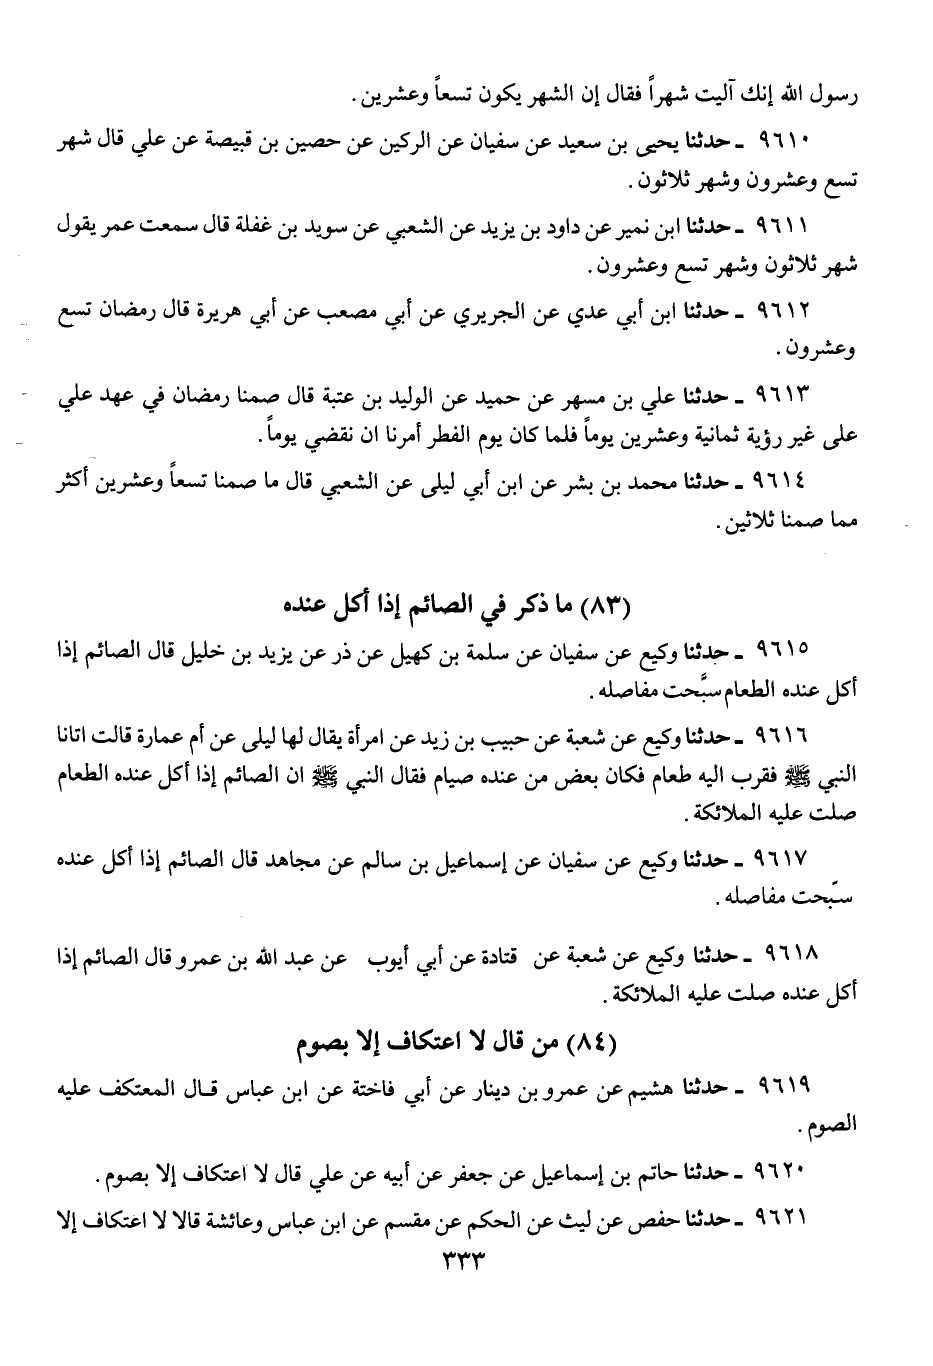 رسول الله إنك آليت شهراً فقال إن الشهر يكون تسعاً وعشرين.
٩٦١٠ ـ حدثنا يحيى بن سعيد عن سفيان عن الركين عن حصين بن قبيصة عن علي قال شهر
تسع وعشرون وشهر ثلاثون.
٩٦١١ ـ حدثنا ابن نمير عن داود بن يزيد عن الشعبي عن سويد بن غفلة قال سمعت عمر يقول
شهر ثلاثون وشهر تسع وعشرون.
٩٦١٢ ـ حدثنا ابن أبي عدي عن الجريري عن أبي مصعب عن أبي هريرة قال رمضان تسع
وعشرون.
٩٦١٣ ـ حدثنا علي بن مسهر عن حميد عن الوليد بن عتبة قال صمنا رمضان في عهد علي
على غير رؤية ثمانية وعشرين يوماً فلما كان يوم الفطر أمرنا ان نقضي يوماً.
٩٦١٤ ـ حدثنا محمد بن بشر عن ابن أبي ليلى عن الشعبي قال ما صمنا تسعاً وعشرين أكثر
مما صمنا ثلاثين.
(٨٣) ما ذكر في الصائم إذا أكل عنده
٩٦١٥ ـ حدثنا وكيع عن سفيان عن سلمة بن كهيل عن ذر عن يزيد بن خليل قال الصائم إذا
أكل عنده الطعام سبَّحت مفاصله.
٩٦١٦ ـ حدثنا وكيع عن شعبة عن حبيب بن زيد عن امرأة يقال لها ليلى عن أم عمارة قالت اتانا
النبي ﷺ فقرب اليه طعام فكان بعض من عنده صيام فقال النبي ﷺ ان الصائم إذا أكل عنده الطعام
صلت عليه الملائكة.
٩٦١٧ ـ حدثنا وكيع عن سفيان عن إسماعيل بن سالم عن مجاهد قال الصائم إذا أكل عنده
سبّحت مفاصله.
٩٦١٨ ـ حدثنا وكيع عن شعبة عن قتادة عن أبي أيوب عن عبد الله بن عمرو قال الصائم إذا
أكل عنده صلت عليه الملائكة.
(٨٤) من قال لا اعتكاف إلا بصوم
٩٦١٩ ـ حدثنا هشيم عن عمرو بن دينار عن أبي فاختة عن ابن عباس قال المعتكف عليه
الصوم.
٩٦٢٠ ـ حدثنا حاتم بن إسماعيل عن جعفر عن أبيه عن علي قال لا اعتكاف إلا بصوم.
٩٦٢١ ـ حدثنا حفص عن ليث عن الحكم عن مقسم عن ابن عباس وعائشة قالا لا اعتكاف إلا
٣٣٣